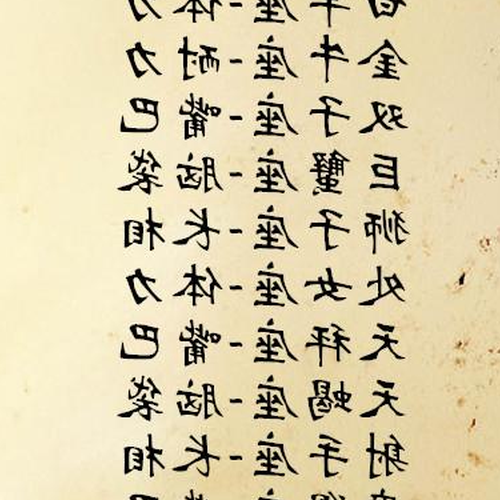 白羊座-体力
金牛座-耐力
双子座-嘴巴
巨蟹座-脑袋
狮子座-长相
处女座-体力
天秤座-嘴巴
天蝎座-脑袋
射手座-长相